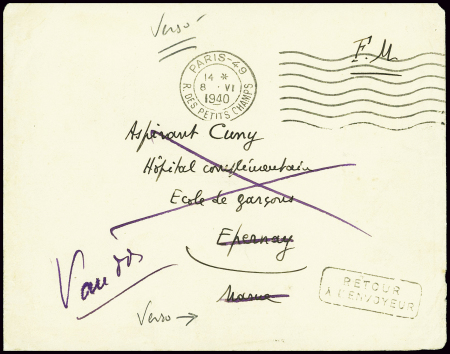 Verso
F.M
PARIS-49
14 *
8 VI
1940
R. DES PETITS CHAMPS
Aspirant Cuny
Hôpital complémentaire
Ecole de garçons
Epernay
Marne
RETOUR
À L'ENVOYEUR
Verso →